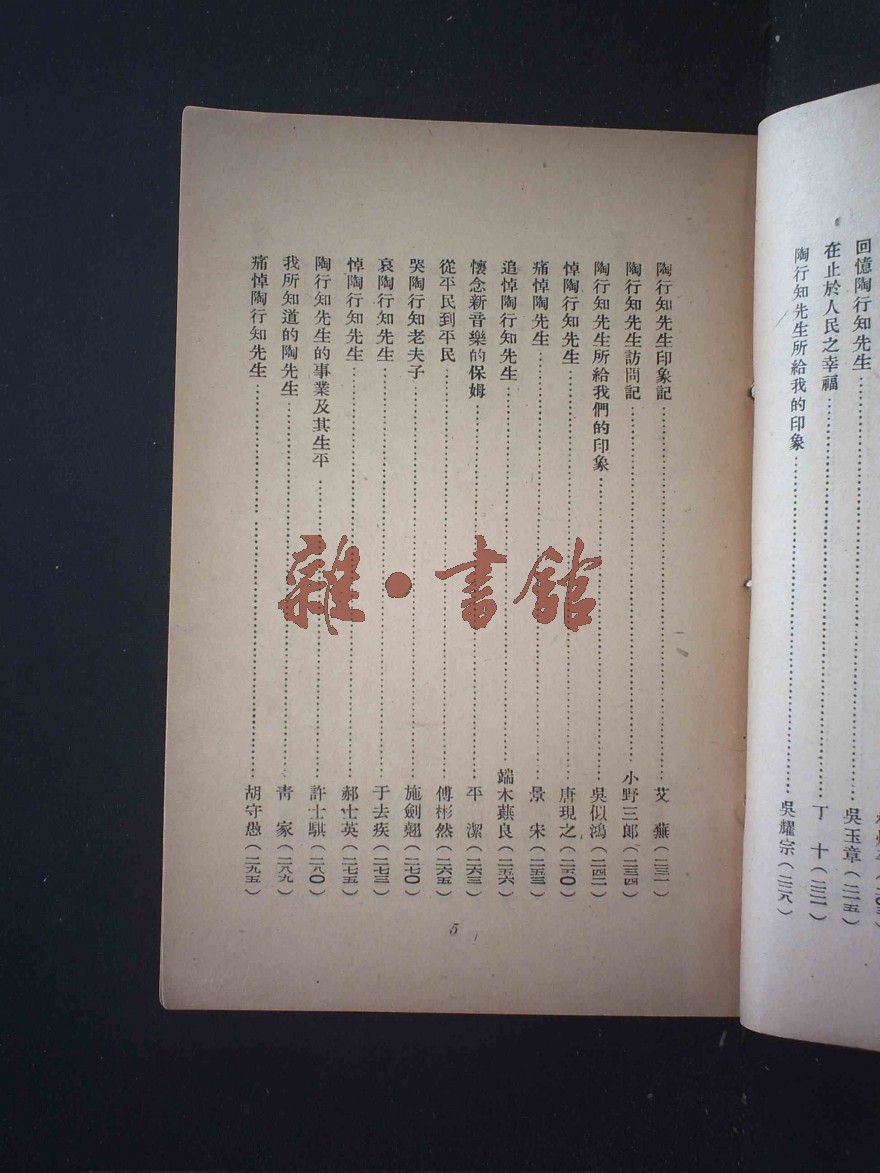 回憶陶行知先生……吳玉章(二一五)
在止於人民之幸福……丁 十(二二一)
陶行知先生所給我的印象……吳耀宗(二二八)
陶行知先生印象記……艾 蕪(二三一)
陶行知先生訪問記……小野三郎(二三四)
陶行知先生所給我們的印象……吳似鴻(二四二)
悼陶行知先生……唐現之(二五〇)
痛悼陶先生……景 宋(二五三)
追悼陶行知先生……端木蕻良(二五六)
懷念新音樂的保姆……平 潔(二六三)
從平民到平民……傅彬然(二六五)
哭陶行知老夫子……施劍翹(二七〇)
哀陶行知先生……于去疾(二七三)
悼陶行知先生……郝士英(二七五)
陶行知先生的事業及其生平……許士騏(二八〇)
我所知道的陶先生……青 家(二八九)
痛悼陶行知先生……胡守愚(二九五)
5
雜·書館